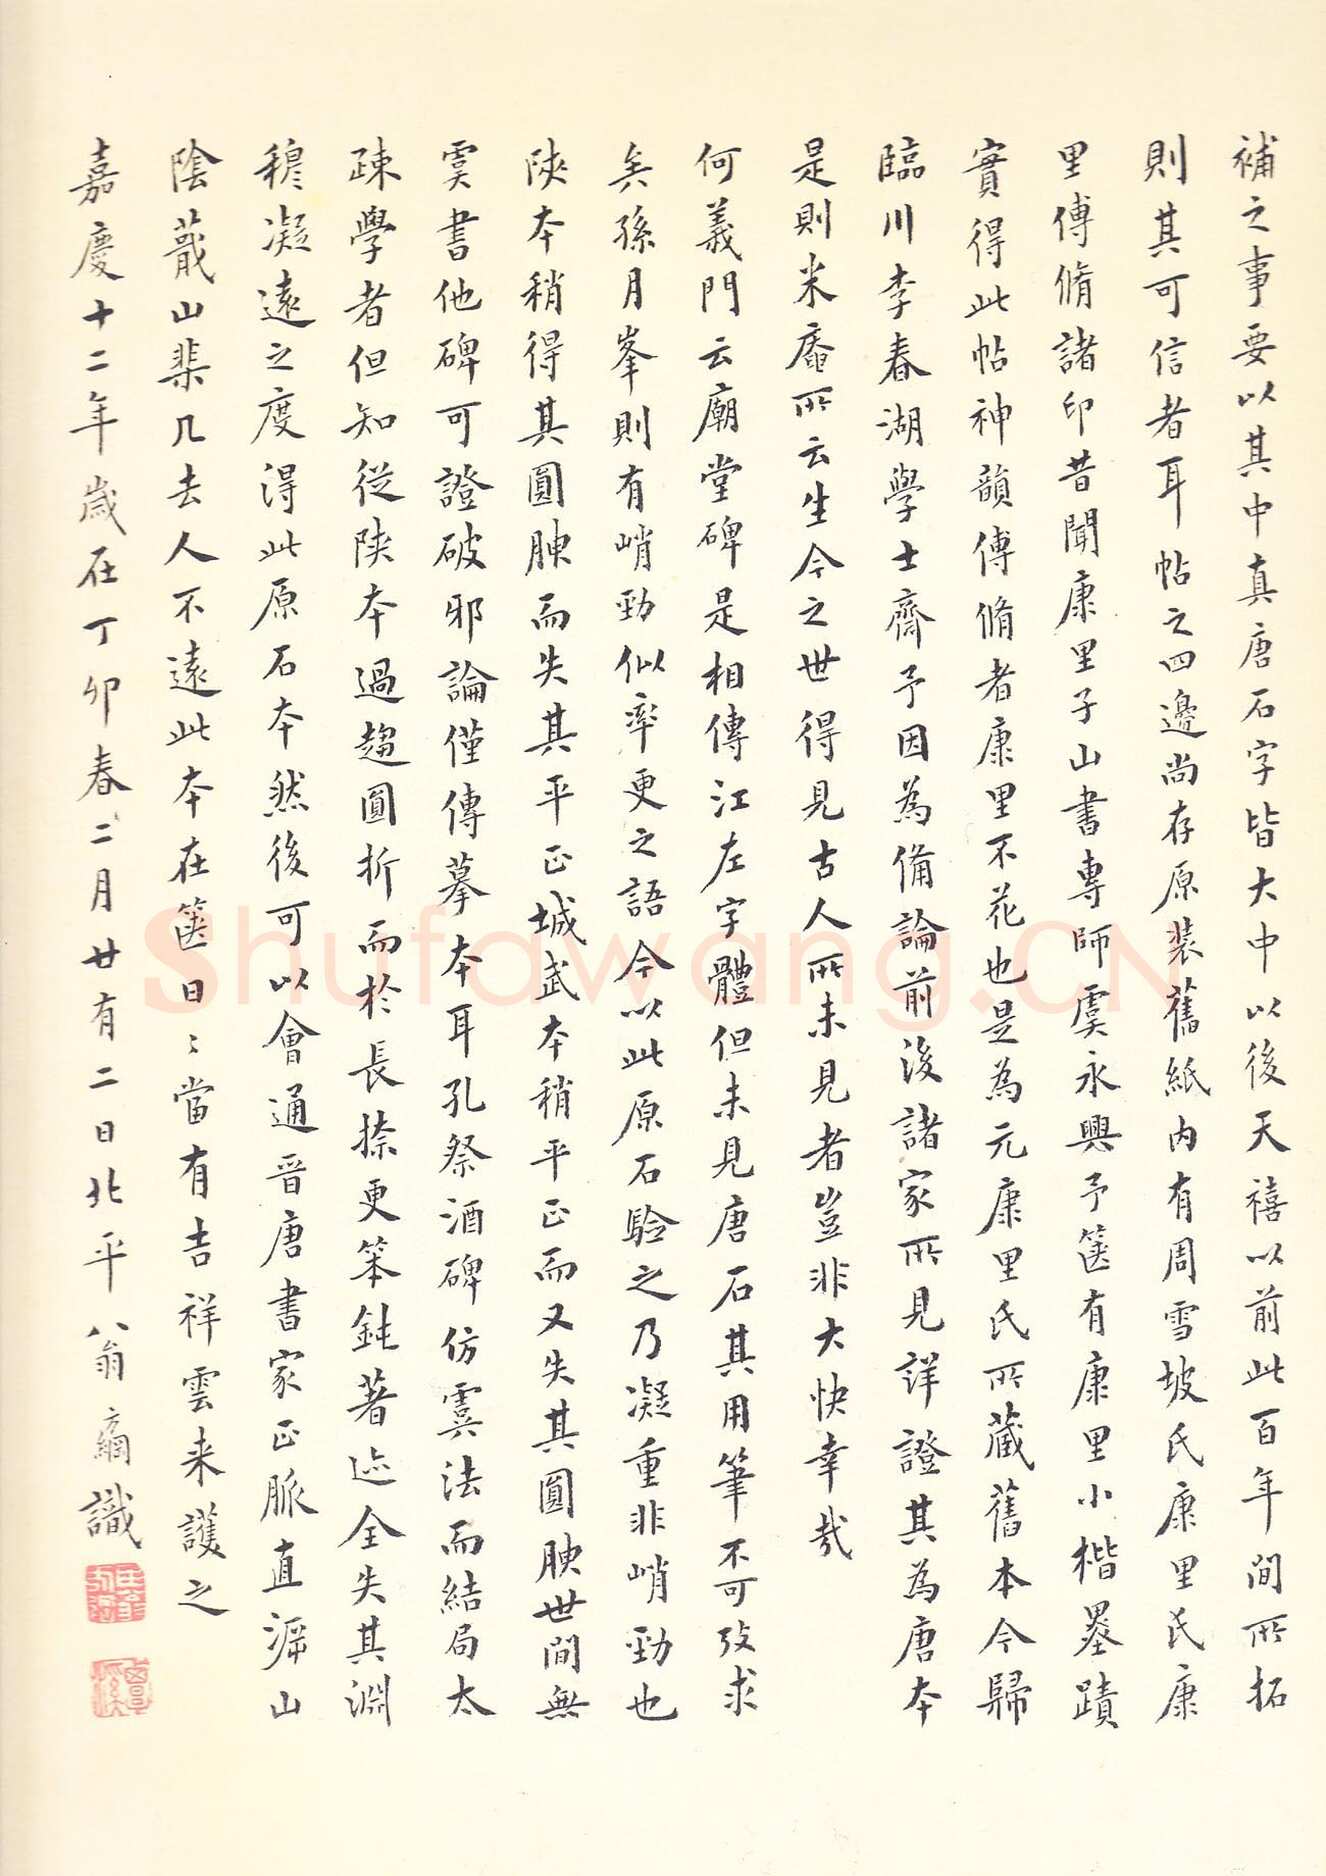 補之事要以其中真唐石字皆大中以後天禧以前此百年間所拓
則其可信者耳帖之四邊尚存原裝舊紙內有周雪坡氏康里氏康
里傅脩諸印昔聞康里子山書專師虞永興予篋有康里小楷墨蹟
實得此帖神韻傅脩者康里不花也是為元康里氏所藏舊本今歸
臨川李春湖學士齋予因為備論前後諸家所見詳證其為唐本
是則米庵所云生今之世得見古人所未見者豈非大快幸哉
何義門云廟堂碑是相傳江左字體但未見唐石其用筆不可攷求
矣孫月峯則有峭勁似率更之語今以此原石驗之乃凝重非峭勁也
陝本稍得其圓腴而失其平正城武本稍平正而又失其圓腴世間無
虞書他碑可證破邪論僅傳摹本耳孔祭酒碑仿虞法而結局太
疎學者但知從陝本過趨圓折而於長捺更笨鈍著迹全失其淵
穆凝遠之度得此原石本然後可以會通晉唐書家正脈直溯山
陰蕺山棐几去人不遠此本在篋日〻當有吉祥雲来護之
嘉慶十二年歲在丁卯春二月廿有二日北平翁方綱識
Shufawang.CN